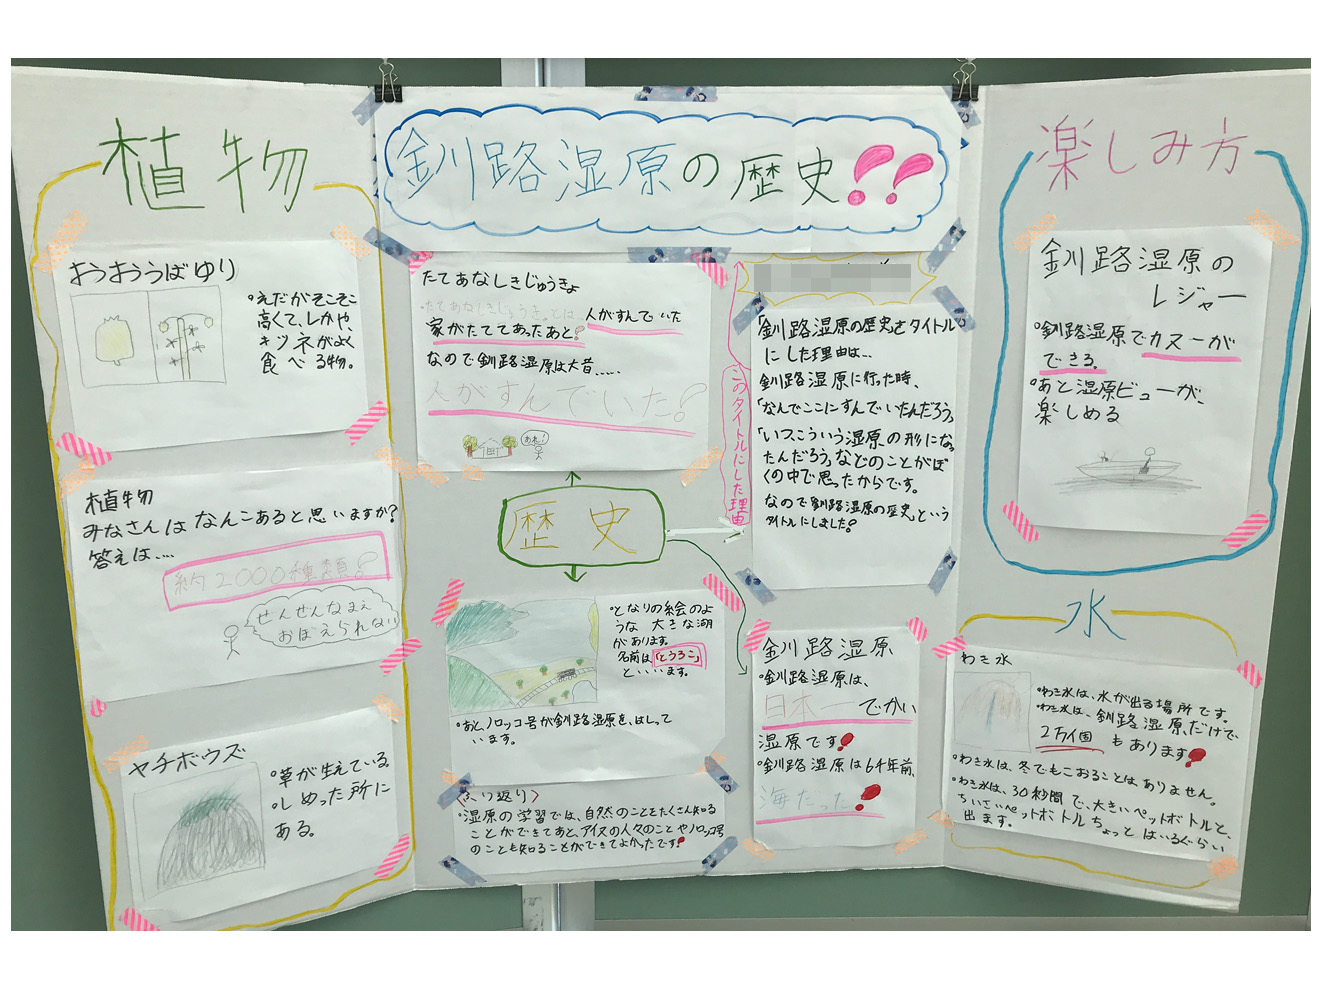 植物
おうおううばゆり
・えだがそこそこ
高くて、しかや、
キツネがよく
食べる物。
植物
みなさんはなんこあると思いますか?
答えは....
約2000種類!?
せんせんなまえ
おぼえられない
ヤチボウズ
・草が生えている
・しめった所に
ある。
釧路湿原の歴史!?
たてあなしきじゅうきょ
・たてあなしきじゅうきょとは...人がすんでいた
家がたててあったあと!
なので釧路湿原は大昔......
人がすんでいた!?
あれ!
歴史
・となりの絵のよ
うな大きな湖
があります。
名前は「とうろこ」
といいます。
・あと、ノロッコ号が釧路湿原を、はしって
います。
〈ふり返り〉
・湿原の学習では、自然のことをたくさん知る
ことができてあと、アイヌの人々のことやノロッコ号
のことも知ることができてよかったです!
このタイトルにした理由
「釧路湿原の歴史をタイトル
にした理由は...
釧路湿原に行った時、
「なんでここにすんでいたんだろう」
「いつこういう湿原の形になっ
たんだろう」などのことがぼ
くの中で思ったからです。
なので「釧路湿原の歴史」という
タイトルにしました!
釧路湿原
・釧路湿原は、
日本一でかい
湿原です!
・釧路湿原は64年前、
海だった!
楽しみ方
釧路湿原の
レジャー
・釧路湿原でカヌーが
できる。
・あと湿原ビューが、
楽しめる
水
わき水
・わき水は、水が出る場所です。
・わき水は、釧路湿原だけで
2万個もあります!
・わき水は、冬でもこおることはありません。
・わき水は、30秒間で、大きいペットボトルと、
ちいさいペットボトルちょっとはいるぐらい
出ます。